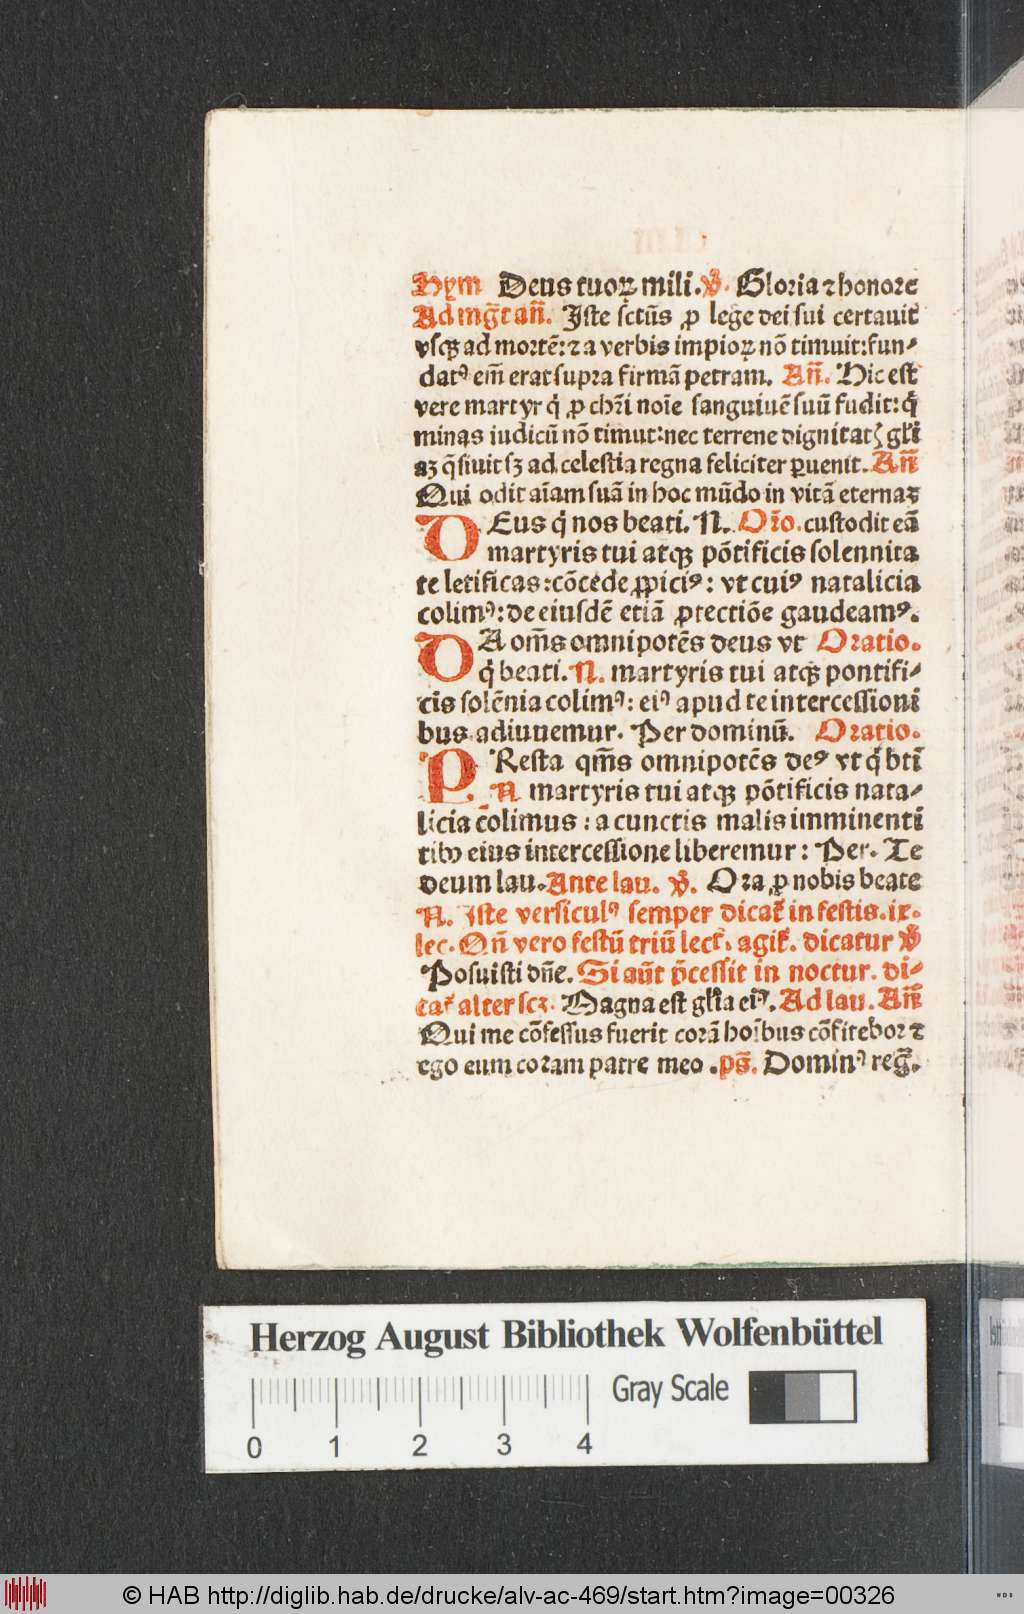 Hym Deus tuoꝝ mili. ℣. Gloria ⁊ honore
Ad mg̅t an̅. Iste sctūs ꝓ lege dei sui certauit
vsqꝫ ad mortē: ⁊ a verbis impioꝝ nō timuit: fun⸗
datꝰ em̄ erat supra firmā petram. An̅. Hic est
vere martyr q̇ ꝓ chr̄i noīe sanguinē suū fudit: q̇
minas iudicū nō timut: nec terrene dignitatꝭ gl̄i
aꝫ q̄siuit sꝫ ad celestia regna feliciter ꝑuenit. An̅
Qui odit aīam suā in hoc mūdo in vitā eternaꝫ
DEus q̇ nos beati. N. Or̄o. custodit eā
martyris tui atqꝫ pōtificis solennita
te letificas: cōcede ꝓpiciꝰ: vt cuiꝰ natalicia
colimꝰ: de eiusdē etiā ꝓtectiōe gaudeamꝰ.
DA om̄s omnipotēs deus vt Oratio.
q̇ beati. N. martyris tui atqꝫ pontifi⸗
cis solēnia colimꝰ: eiꝰ apud te intercessioni
bus adiuuemur. Per dominū. Oratio.
PResta qm̄s omnipotēs deꝰ vt q̇ bti̅
N martyris tui atqꝫ pōtificis nata⸗
licia colimus: a cunctis malis imminenti
tibꝰ eius intercessione liberemur: Per. Te
deum lau. Ante lau. ℣. Ora ꝓ nobis beate
N. Iste versiculꝰ semper dicat᷑ in festis. ix.
lec. Qn̄ vero festū triū lect᷑. agit᷑. dicatur ℣
Posuisti dn̄e. Si aūt p̄cessit in noctur. di⸗
cat᷑ alter scꝫ. Magna est gl̄ia eiꝰ. Ad lau. An̅
Qui me cōfessus fuerit corā hoībus cōfitebor ⁊
ego eum coram patre meo. ps̄. Dominꝰ reg̅.
Herzog August Bibliothek Wolfenbüttel
0 1 2 3 4 Gray Scale
© HAB http://diglib.hab.de/drucke/alv-ac-469/start.htm?image=00326